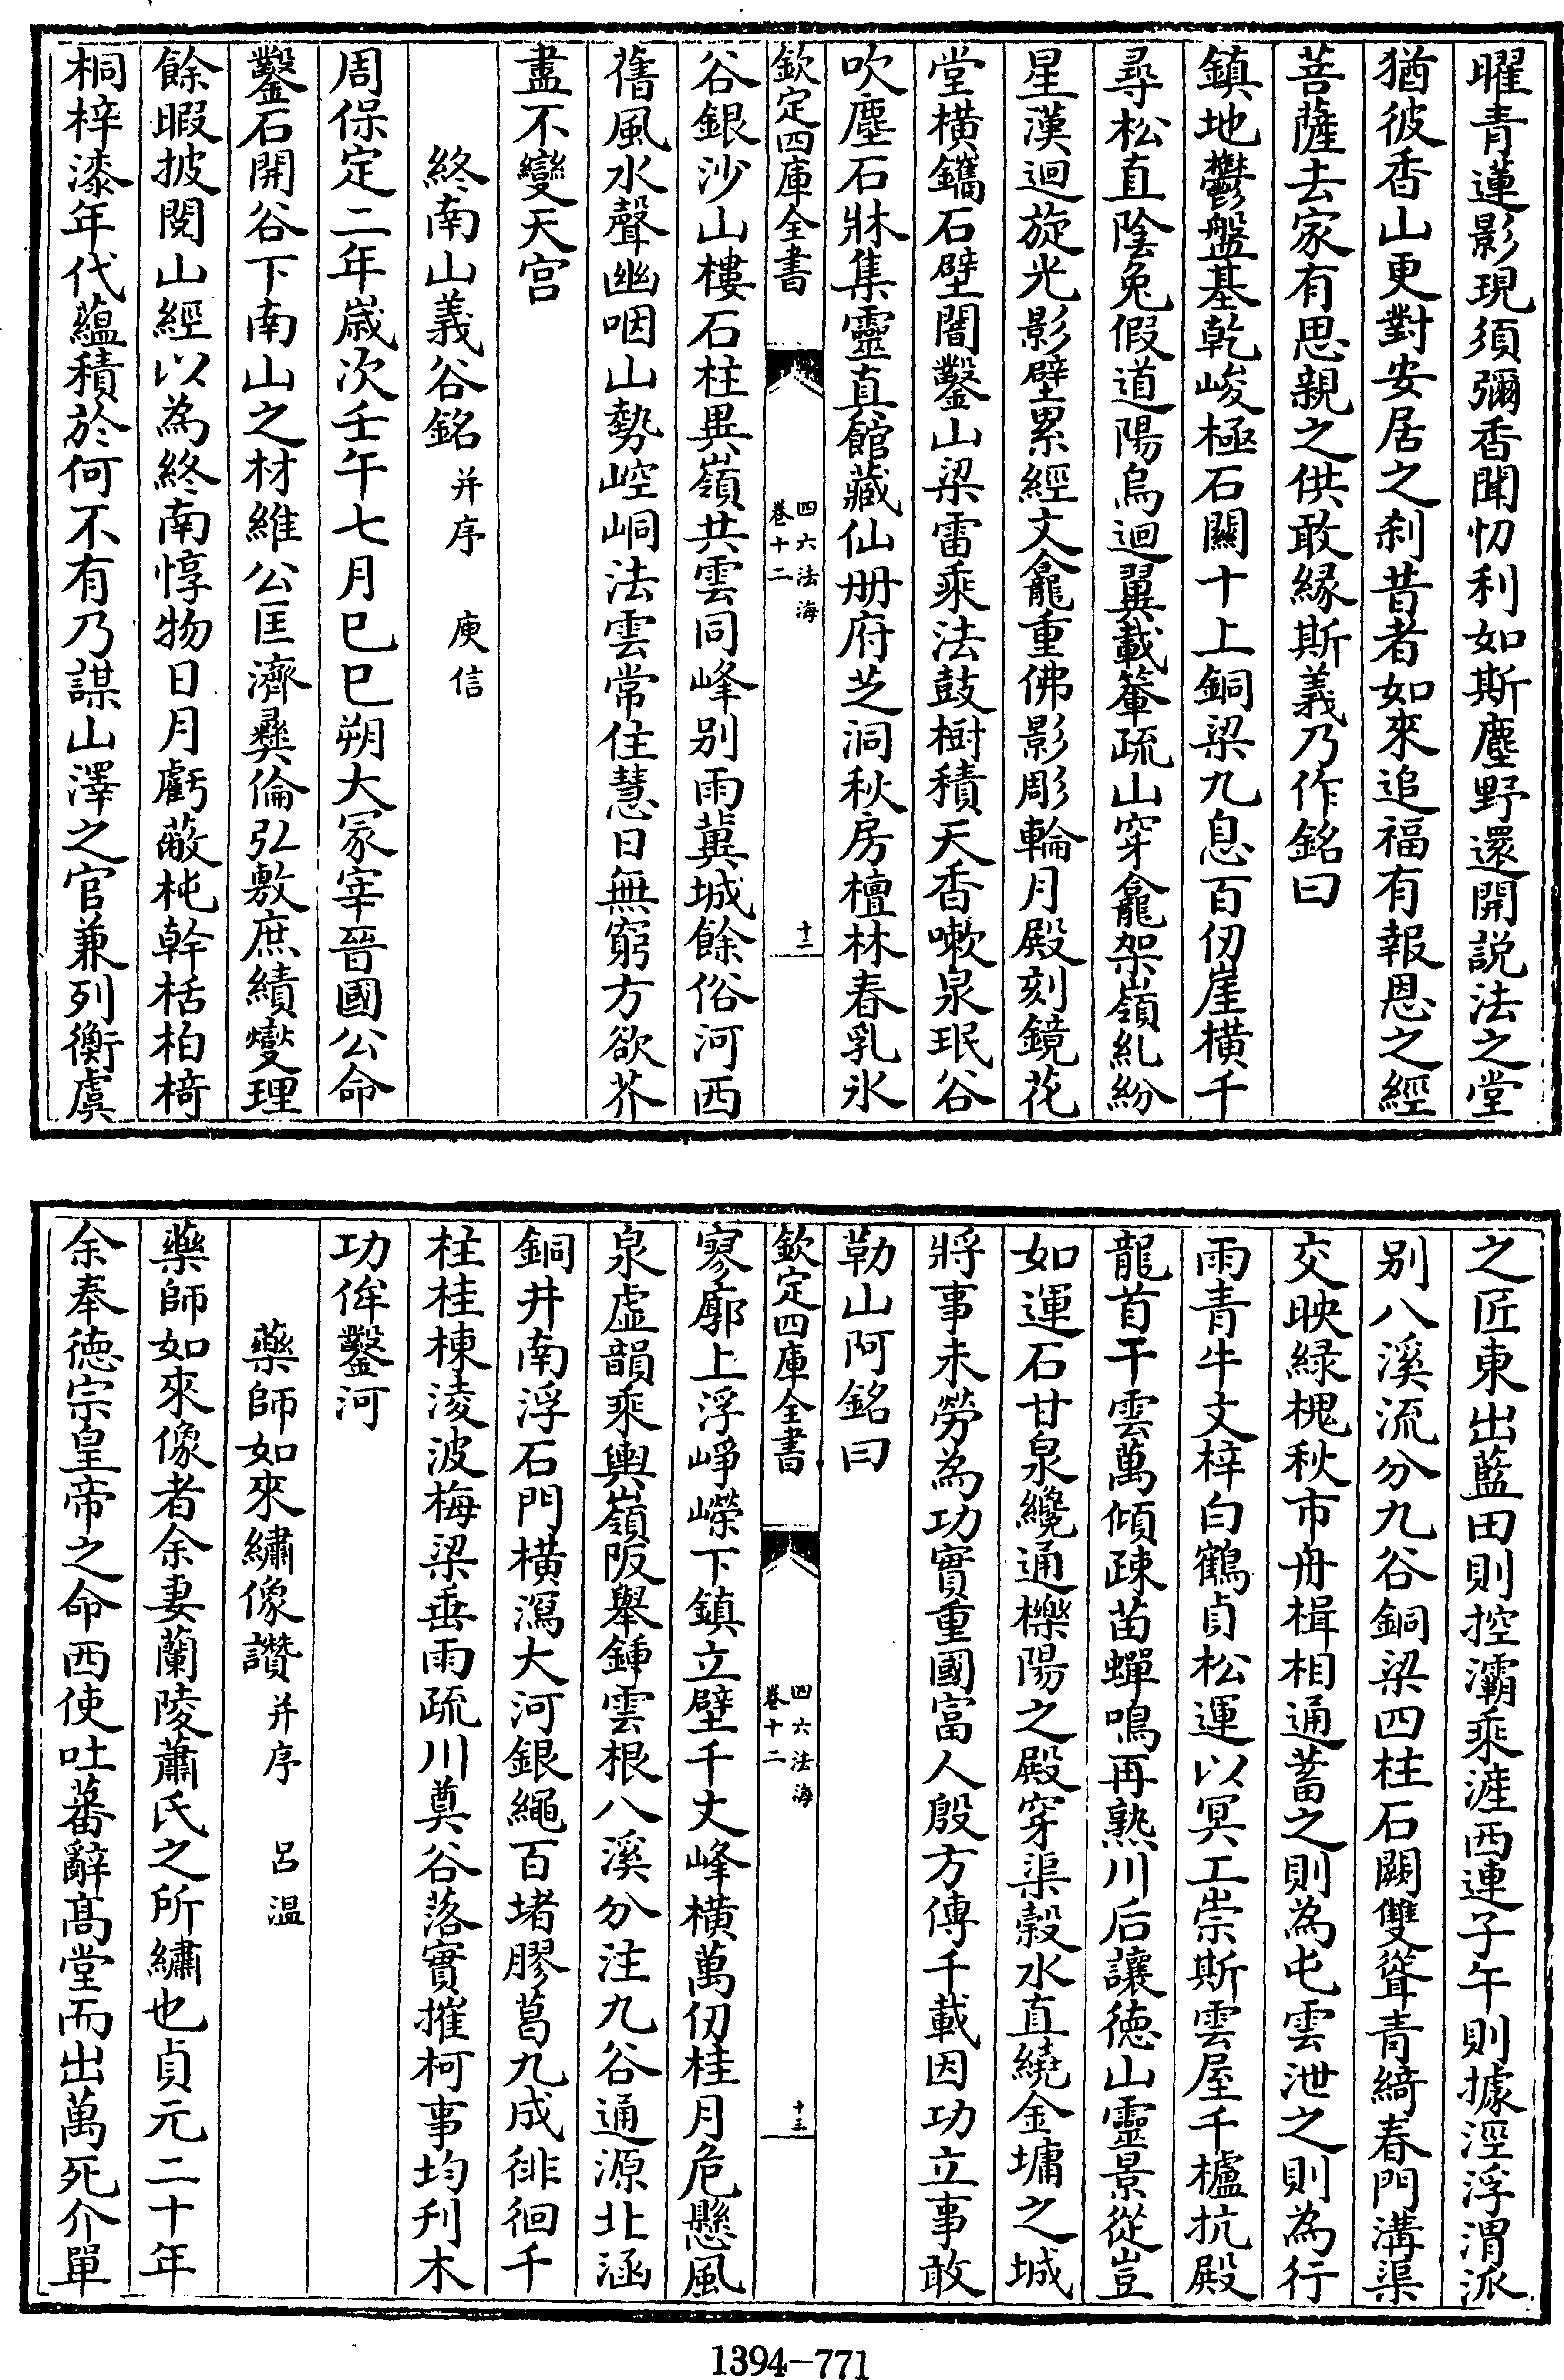 曜青蓮影現須彌香聞忉利如斯塵野還開説法之堂
猶彼香山更對安居之刹昔者如來追福有報恩之經
菩薩去家有思親之供敢緣斯義乃作銘曰
鎮地鬱盤基乾峻極石關十上銅梁九息百仞崖橫千
尋松直陰兔假道陽烏迴翼載𥴦疏山穿龕架嶺糺紛
星漢迴旋光影壁累經文龕重佛影彫輪月殿刻鏡花
堂橫鐫石壁闇鑿山梁雷乘法鼓樹積天香嗽泉珉谷
吹塵石牀集靈真館藏仙册府芝洞秋房檀林春乳氷
欽定四庫全書
四六法海
卷十二
十二
谷銀沙山樓石柱異嶺共雲同峰别雨冀城餘俗河西
舊風水聲幽咽山勢崆峒法雲常住慧日無窮方欲芥
盡不變天宫
終南山義谷銘并序 庾信
周保定二年嵗次壬午七月已巳朔大冢宰晉國公命
鑿石開谷下南山之材維公匡濟彞倫弘敷庶績燮理
餘暇披閱山經以為終南惇物日月虧蔽杶幹栝柏椅
桐梓漆年代蘊積於何不有乃謀山澤之官兼列衡虞
之匠東出藍田則控灞乘滻西連子午則據涇浮渭派
别八溪流分九谷銅梁四柱石闕雙聳青綺春門溝渠
交映緑槐秋市舟楫相通蓄之則為屯雲泄之則為行
雨青牛文梓白鶴貞松運以冥工崇斯雲屋千櫨抗殿
龍首干雲萬傾疎苗蟬鳴再熟川后讓徳山靈景從豈
如運石甘泉纔通櫟陽之殿穿渠榖水直繞金墉之城
將事未勞為功實重國富人殷方傳千載因功立事敢
勒山阿銘曰
欽定四庫全書
四六法海
卷十二
十三
寥廓上浮崢嶸下鎮立壁千丈峰橫萬仞桂月危懸風
泉虚韻乘輿嶺阪舉鍤雲根八溪分注九谷通源北涵
銅井南浮石門橫瀉大河銀繩百堵膠葛九成徘徊千
柱桂棟淩波梅梁垂雨疏川奠谷落實摧柯事均刋木
功侔鑿河
藥師如來繡像讚并序 呂温
藥師如來像者余妻蘭陵蕭氏之所繡也貞元二十年
余奉徳宗皇帝之命西使吐蕃辭髙堂而出萬死介單
1394-771